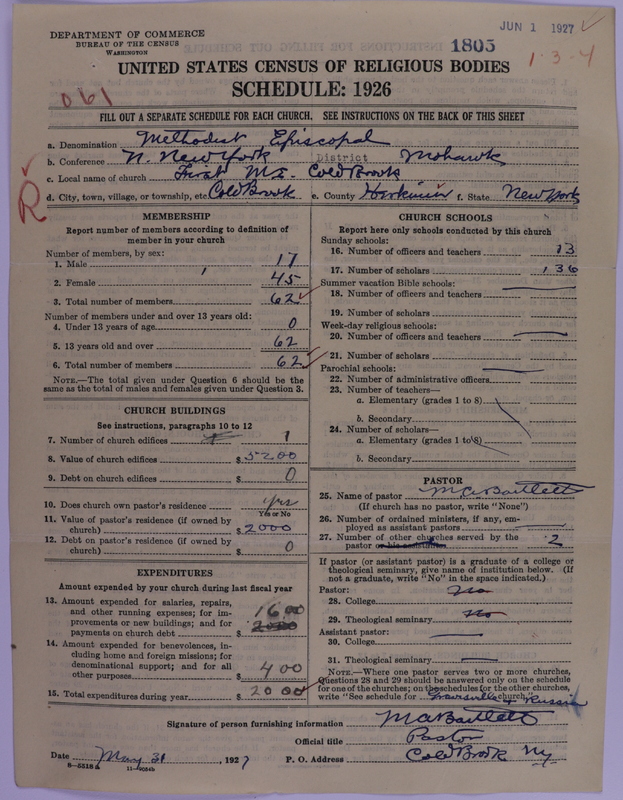 DEPARTMENT OF COMMERCE
BUREAU OF THE CENSUS
WASHINGTON
JUN 1 1927
1805
1-3-4
UNITED STATES CENSUS OF RELIGIOUS BODIES
SCHEDULE: 1926
061
FILL OUT A SEPARATE SCHEDULE FOR EACH CHURCH. SEE INSTRUCTIONS ON THE BACK OF THIS SHEET
R
a. Denomination Methodist Episcopal
b. Conference N. New York District Mohawk
c. Local name of church First M.E. Cold Brook
d. City, town, village, or township, etc. Cold Brook e. County Herkimer f. State New York
MEMBERSHIP
Report number of members according to definition of
member in your church
Number of members, by sex:
1. Male 17
2. Female 45
3. Total number of members 62
Number of members under and over 13 years old:
4. Under 13 years of age 0
5. 13 years old and over 62
6. Total number of members 62
NOTE.—The total given under Question 6 should be the
same as the total of males and females given under Question 3.
CHURCH BUILDINGS
See instructions, paragraphs 10 to 12
7. Number of church edifices 1
8. Value of church edifices $ 5200
9. Debt on church edifices $ 0
10. Does church own pastor's residence yes
Yes or No
11. Value of pastor's residence (if owned by
church) $ 2000
12. Debt on pastor's residence (if owned by
church) $ 0
EXPENDITURES
Amount expended by your church during last fiscal year
13. Amount expended for salaries, repairs,
and other running expenses; for im-
provements or new buildings; and for
payments on church debt $ 1600
14. Amount expended for benevolences, in-
cluding home and foreign missions; for
denominational support; and for all
other purposes $ 400
15. Total expenditures during year $ 2000
CHURCH SCHOOLS
Report here only schools conducted by this church
Sunday schools:
16. Number of officers and teachers 13
17. Number of scholars 136
Summer vacation Bible schools:
18. Number of officers and teachers
19. Number of scholars
Week-day religious schools:
20. Number of officers and teachers
21. Number of scholars
Parochial schools:
22. Number of administrative officers
23. Number of teachers—
a. Elementary (grades 1 to 8)
b. Secondary
24. Number of scholars—
a. Elementary (grades 1 to 8)
b. Secondary
PASTOR
25. Name of pastor M A Bartlett
(If church has no pastor, write "None")
26. Number of ordained ministers, if any, em-
ployed as assistant pastors
27. Number of other churches served by the
pastor or his assistants 2
If pastor (or assistant pastor) is a graduate of a college or
theological seminary, give name of institution below. (If
not a graduate, write "No" in the space indicated.)
Pastor:
28. College No
29. Theological seminary No
Assistant pastor:
30. College
31. Theological seminary
NOTE.—Where one pastor serves two or more churches,
Questions 28 and 29 should be answered only on the schedule
for one of the churches; on the schedules for the other churches,
write "See schedule for Gravesville & Russia church."
Signature of person furnishing information M A Bartlett
Official title Pastor
Date May 31, 1927 P. O. Address Cold Brook Ny
8-5518a